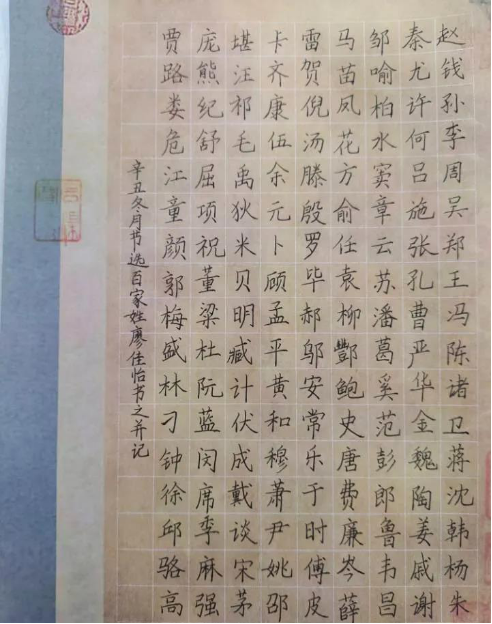 赵钱孙李周吴郑王冯陈诸卫蒋沈韩杨朱
秦尤许何吕施张孔曹严华金魏陶姜戚谢
邹喻柏水窦章云苏潘葛奚范彭郎鲁韦昌
马苗凤花方俞任袁柳酆鲍史唐费廉岑薛
雷贺倪汤滕殷罗毕郝邬安常乐于时傅皮
卡齐康伍余元卜顾孟平黄和穆萧尹姚邵
堪汪祁毛禹狄米贝明臧计伏成戴谈宋茅
庞熊纪舒屈项祝董梁杜阮蓝闵席季麻强
贾路娄危江童颜郭梅盛林刁钟徐邱骆高
辛丑冬月节选百家姓廖佳怡书之并记